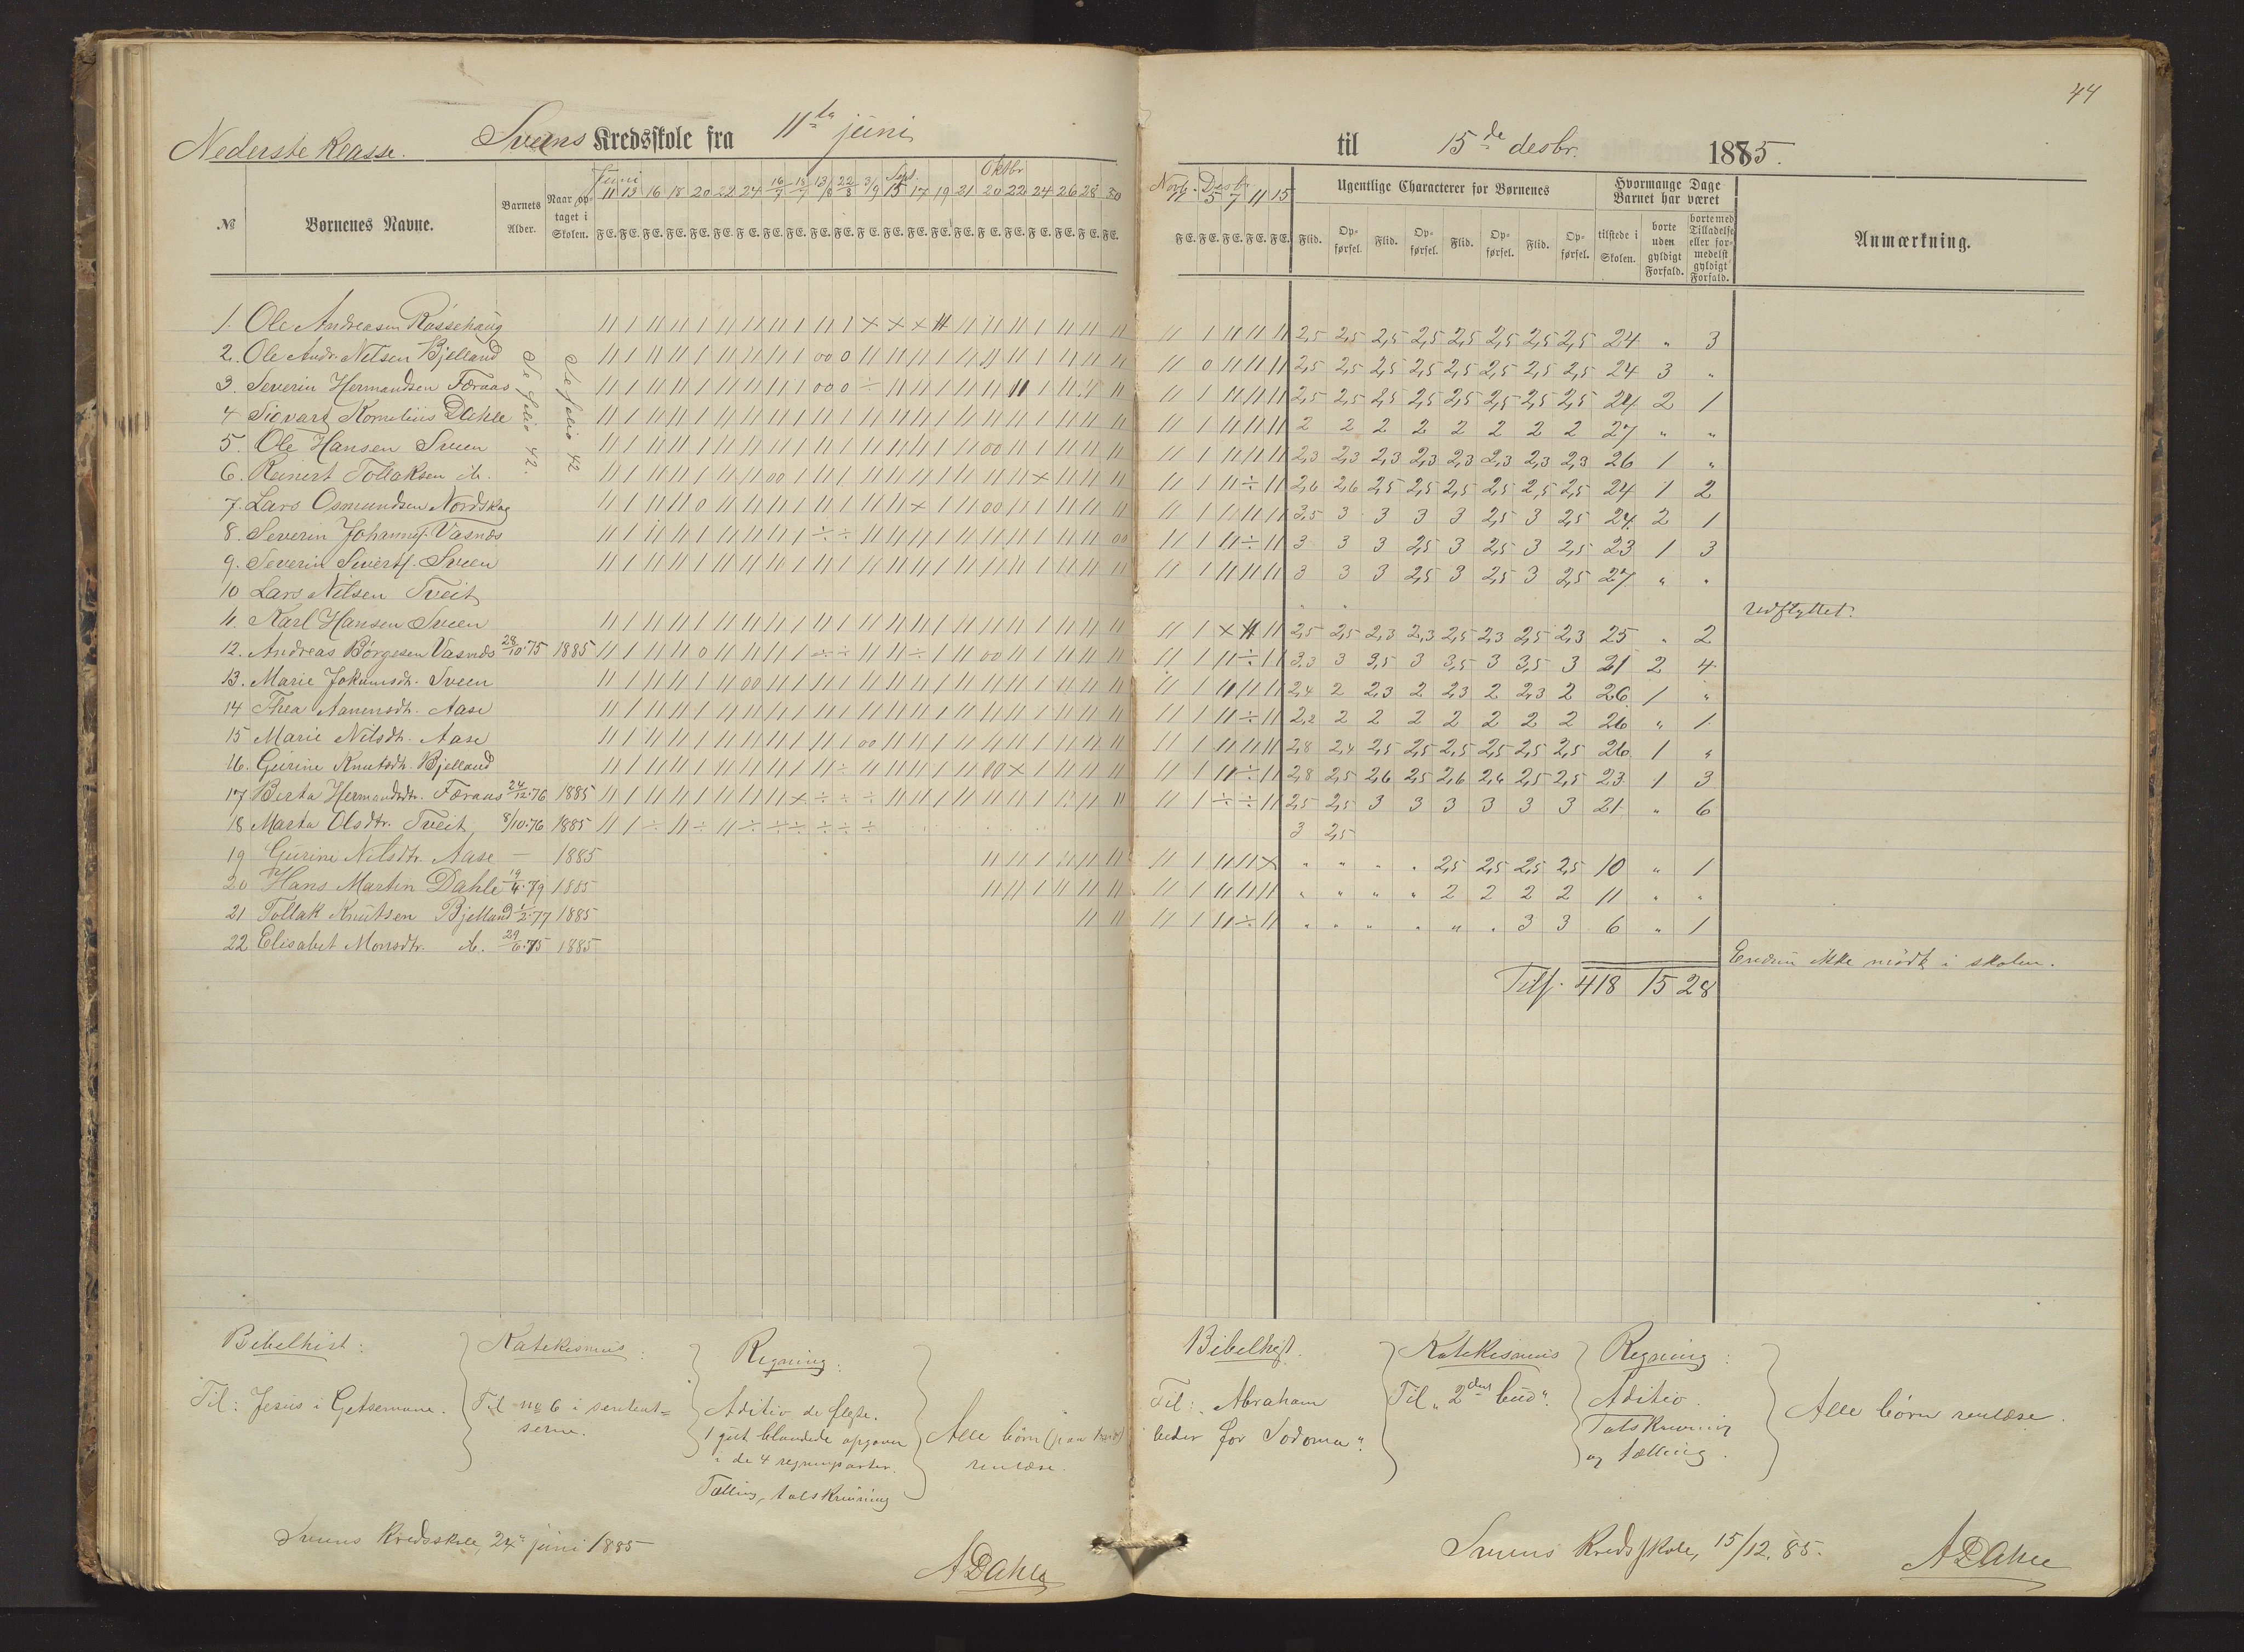 44
Nederste klasse. Sveens Kredsskole fra 11te juni
til 15de desbr. 1885.
No. Børnenes Navne. Barnets Alder. Naar optaget i Skolen.
Juni 11 13 16 18 20 22 24 16/7 18/7 13/8 22/8 3/9 Sept. 15 17 19 21 Oktbr 20 22 24 26 28 30
Novb. Desbr. 5 7 11 15
F E. F E. F E. F E. F E. F E. F E. F E. F E. F E. F E. F E. F E. F E. F E. F E. F E. F E. F E. F E. F E. F E.
F E. F E. F E. F E. F E.
Ugentlige Characterer for Børnenes
Flid. Opførsel. Flid. Opførsel. Flid. Opførsel. Flid. Opførsel.
Hvormange Dage Barnet har været
tilstede i Skolen. borte uden gyldigt Forfald. borte med Tilladelse eller formedelst gyldigt Forfald.
Anmærkning.
Se folio 42.
Se folio 42
1. Ole Andreasen Røssehaug 2,5 2,5 2,5 2,5 2,5 2,5 2,5 2,5 24 " 3
2. Ole Andr. Nilsen Bjelland 2,5 2,5 2,5 2,5 2,5 2,5 2,5 2,5 24 3 "
3. Severin Hermandsen Færaas 2,5 2,5 2,5 2,5 2,5 2,5 2,5 2,5 24 2 1
4 Sigvart Kornelius Dahle 2 2 2 2 2 2 2 2 27 " "
5. Ole Hansen Sveen 2,3 2,3 2,3 2,3 2,3 2,3 2,3 2,3 26 1 "
6. Reinert Tollaksen do. 2,6 2,6 2,5 2,5 2,5 2,5 2,5 2,5 24 1 2
7. Lars Osmundsen Nordskog 3,5 3 3 3 3 2,5 3 2,5 24 2 1
8. Severin Johannes. Vasnes 3 3 3 2,5 3 2,5 3 2,5 23 1 3
9. Severin Siverts. Sveen 3 3 3 2,5 3 2,5 3 2,5 27 " "
10 Lars Nilsen Tveit Udflyttet.
11. Karl Hansen Sveen 2,5 2,5 2,3 2,3 2,5 2,3 2,5 2,3 25 " 2
12. Andreas Børgesen Vasnes 28/10.75 1885 3,3 3 3,5 3 3,5 3 3,5 3 21 2 4
13. Marie Jokumsdtr. Sveen 2,4 2 2,3 2 2,3 2 2,3 2 26 1 "
14 Thea Aanensdtr. Aase 2,2 2 2 2 2 2 2 2 26 " 1
15 Marie Nilsdtr. Aase 2,8 2,4 2,5 2,5 2,5 2,5 2,5 2,5 26 1 "
16. Gurine Knutsdtr. Bjelland 2,8 2,5 2,6 2,5 2,6 2,4 2,5 2,5 23 1 3
17 Berta Hermandsdtr. Færaas 24/12.76 1885 2,5 2,5 3 3 3 3 3 3 21 " 6
18 Marta Olsdtr. Tveit, 8/10.76 1885 3 2,5
19 Gurine Nilsdtr. Aase — 1885 " " " " 2,5 2,5 2,5 2,5 10 " 1
20 Hans Martin Dahle 19/4.79 1885 " " " " 2 2 2 2 11 " "
21 Tollak Knutsen Bjelland 1/2.77 1885 " " " " " " 3 3 6 " 1
22 Elisabet Monsdtr. do. 29/6.75 1885 Endnu ikke mødt i skolen.
Tils. 418 15 28
Bibelhist:
Til: Jesus i Getsemane.
Katekismus:
Til no 6 i sentent=
serne.
Regning:
Aditio de fleste.
1 gut blandede opgaver
i de 4 regningsarter.
Tælling, talskrivning
Alle børn
renlæse.
Sveens Kredsskole, 24de juni 1885
A Dahle
Bibelhist.
Til: "Abraham
beder for Sodoma".
Katekismus
Til "2det bud".
Regning:
Aditio.
Talskrivning
og tælling.
Alle børn renlæse.
Sveens Kredsskole, 15/12. 85.
A Dahle